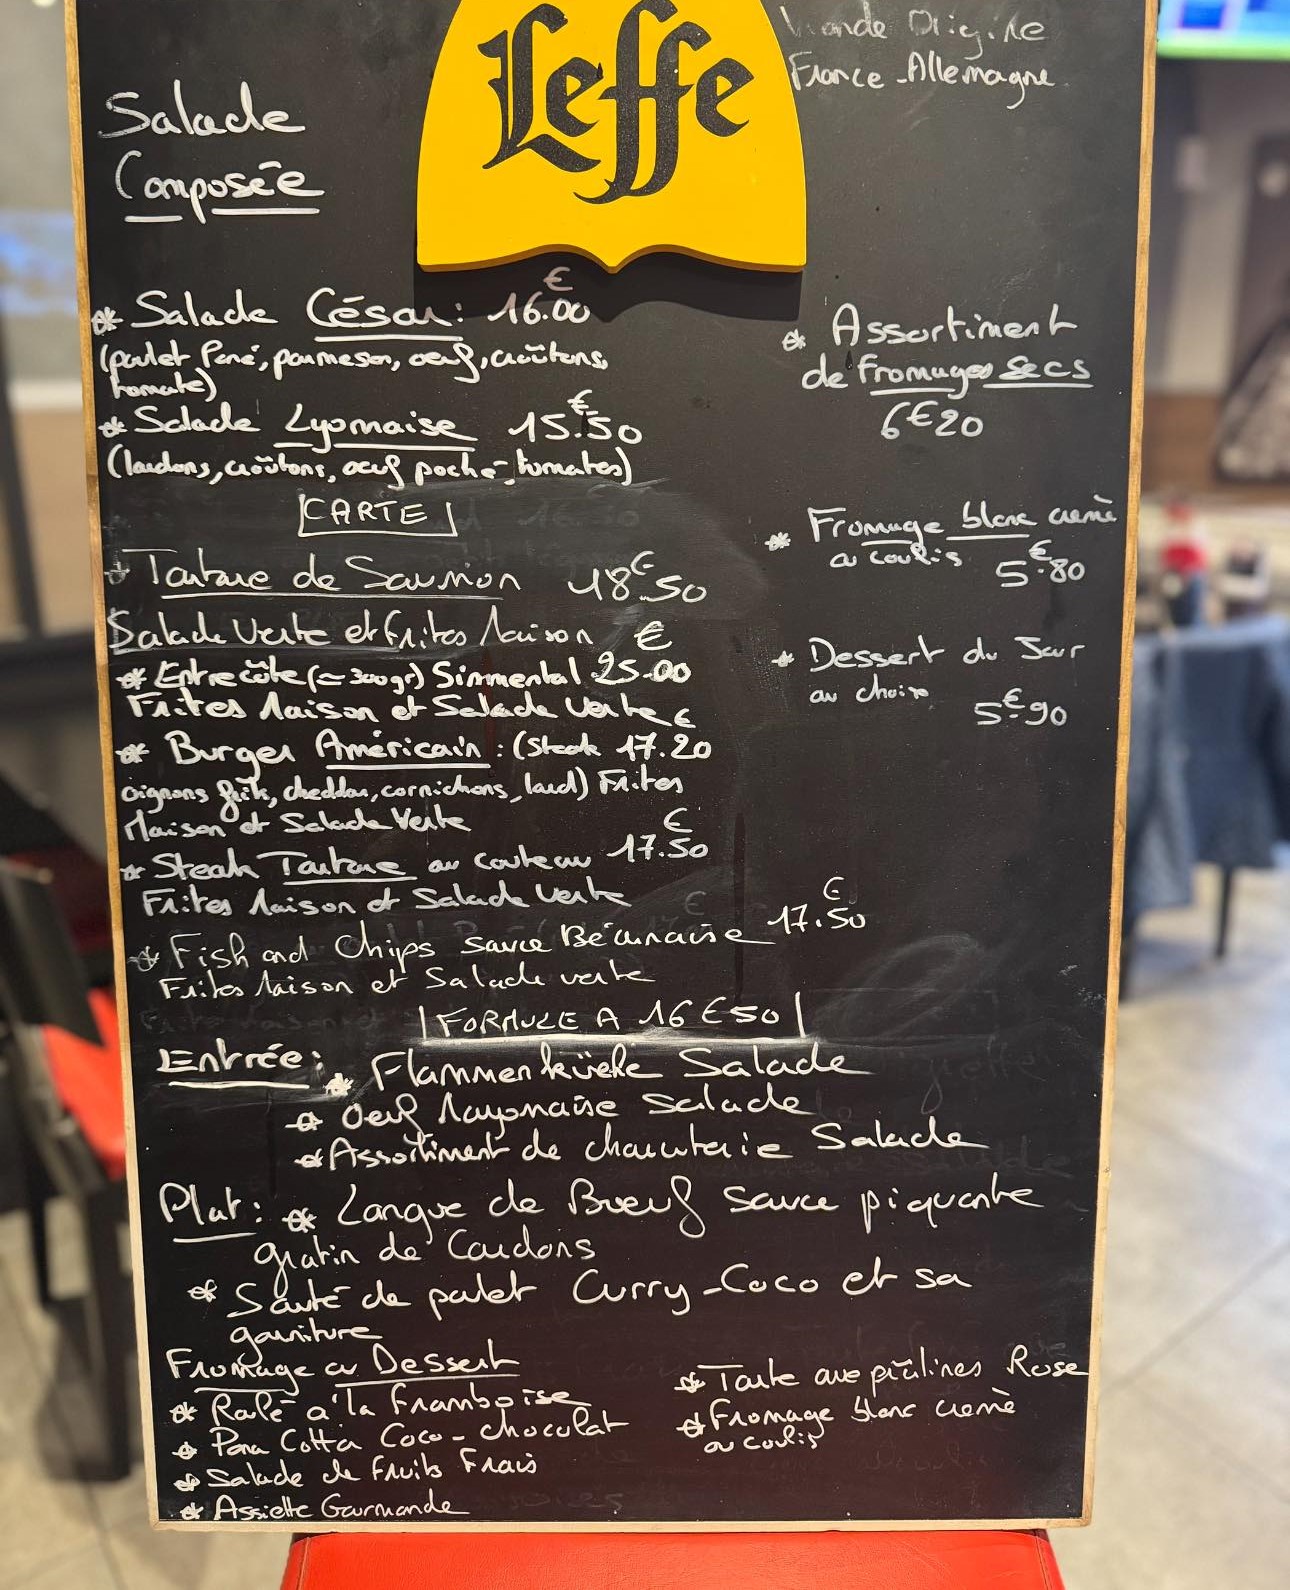 Leffe
Viande Origine
France-Allemagne
Salade
Composée
* Salade César: 16.00 €
(poulet Pané, parmesan, oeuf, croûtons,
tomate)
* Salade Lyonnaise 15.50 €
(lardons, croûtons, oeuf poché, tomates)
CARTE
* Tartare de Saumon 18€50
Salade Verte et Frites Maison
* Entrecôte (≃ 300gr) Simmental 25.00 €
Frites Maison et Salade Verte
* Burger Américain: (Steak 17.20 €
oignons frits, cheddar, cornichons, lard) Frites
Maison et Salade Verte
* Steak Tartare au couteau 17.50 €
Frites Maison et Salade Verte
* Fish and Chips sauce Béarnaise 17.50 €
Frites Maison et Salade verte
* Assortiment
de fromages secs
6€20
* Fromage blanc crème
ou coulis 5.80 €
* Dessert du Jour
au choix
5.90 €
FORMULE A 16€50
Entrée:
* Flammenküche Salade
* Oeuf Mayonaise Salade
* Assortiment de charcuterie Salade
Plat: * Langue de Boeuf sauce piquante
gratin de Cardons
* Sauté de poulet Curry-Coco et sa
garniture
Fromage ou Dessert
* Rolé à la Framboise
* Pana Cotta Coco-chocolat
* Salade de fruits Frais
* Assiette Gourmande
* Tarte aux prâlines Rose
* Fromage blanc crème
ou coulis